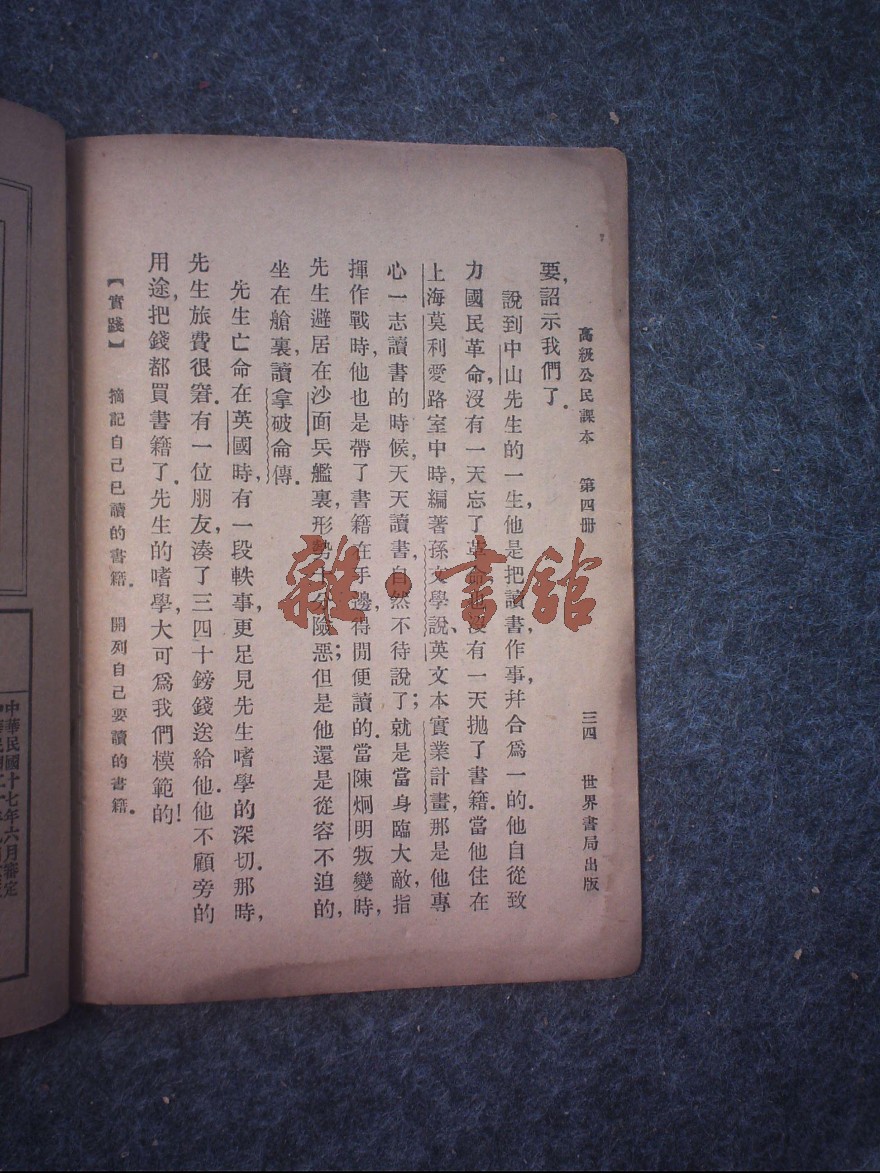 高級公民課本　第四册　三四　世界書局出版
要，詔示我們了．
說到中山先生的一生，他是把讀書作事，并合爲一的．他自從致
力國民革命，沒有一天忘了革命，也沒有一天拋了書籍．當他住在
上海莫利愛路室中時，編著孫文學說、英文本實業計畫，那是他專
心一志讀書的時候，天天讀書，自然不待說了；就是當身臨大敵，指
揮作戰時，他也是帶了書籍在手邊，得閒便讀的．當陳炯明叛變時，
先生避居在沙面兵艦裏，形勢十分險惡；但是他還是從容不迫的，
坐在艙裏，讀拿破侖傳．
先生亡命在英國時，有一段軼事，更足見先生嗜學的深切．那時，
先生旅費很窘．有一位朋友，湊了三四十鎊錢送給他．他不顧旁的
用途，把錢都買書籍了．先生的嗜學，大可爲我們模範的！
【實踐】　摘記自己已讀的書籍．　開列自己要讀的書籍．
中華民國十七年六月審定
雜·書館